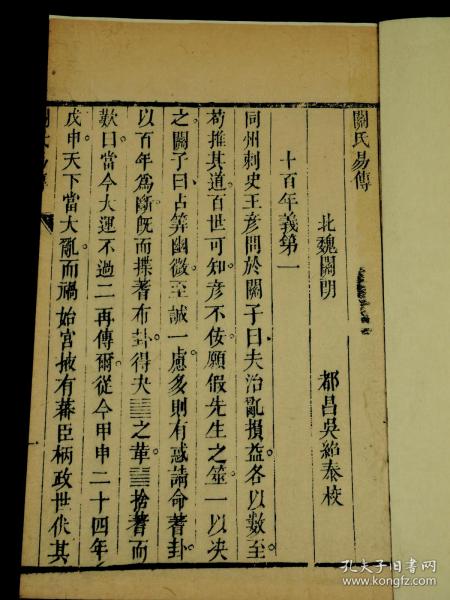 關氏易傳
北魏關朗　都昌吳紹泰校
卜百年義第一
同州刺史王彥問於關子曰夫治亂損益各以數至
苟推其道百世可知彥不佞願假先生之筮一以决
之關子曰占筭幽微至誠一慮多則有惑請命蓍卦
以百年爲斷旣而揲蓍布卦得夬䷪之革䷰捨蓍而
歎曰當今大運不過二再傳爾從今甲申二十四年
戊申天下當大亂而禍始宮掖有蕃臣柄政世伏其
孔夫子旧书网
www.kongfz.com